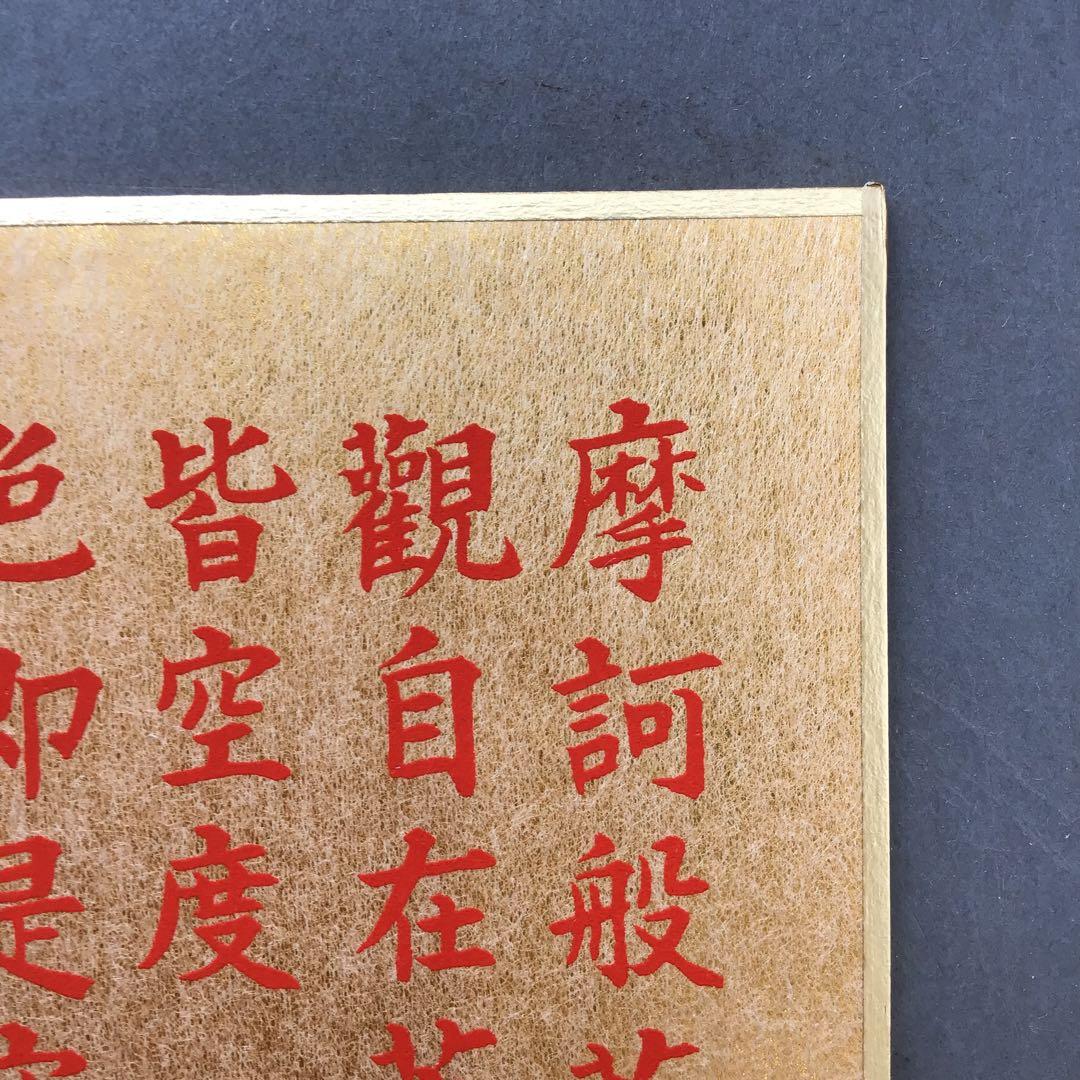 摩訶般
觀自在
皆空度
色即是